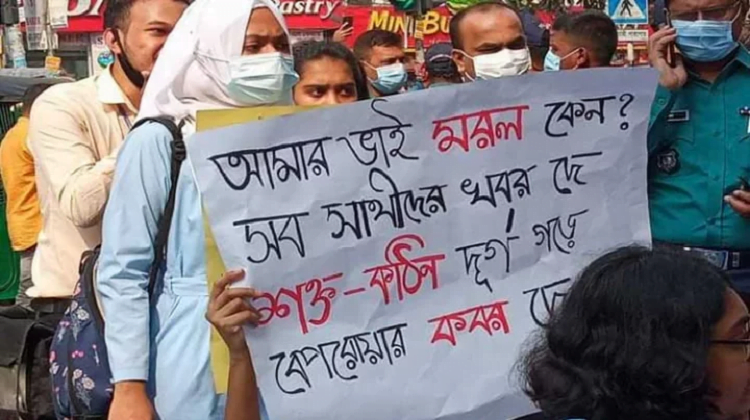 Pastry
MINI
আমার ভাই মরল কেন?
সব সাথীদের খবর দে
শক্ত-কঠিন দূর্গ গড়ে
বেপরোয়ার কবর দে